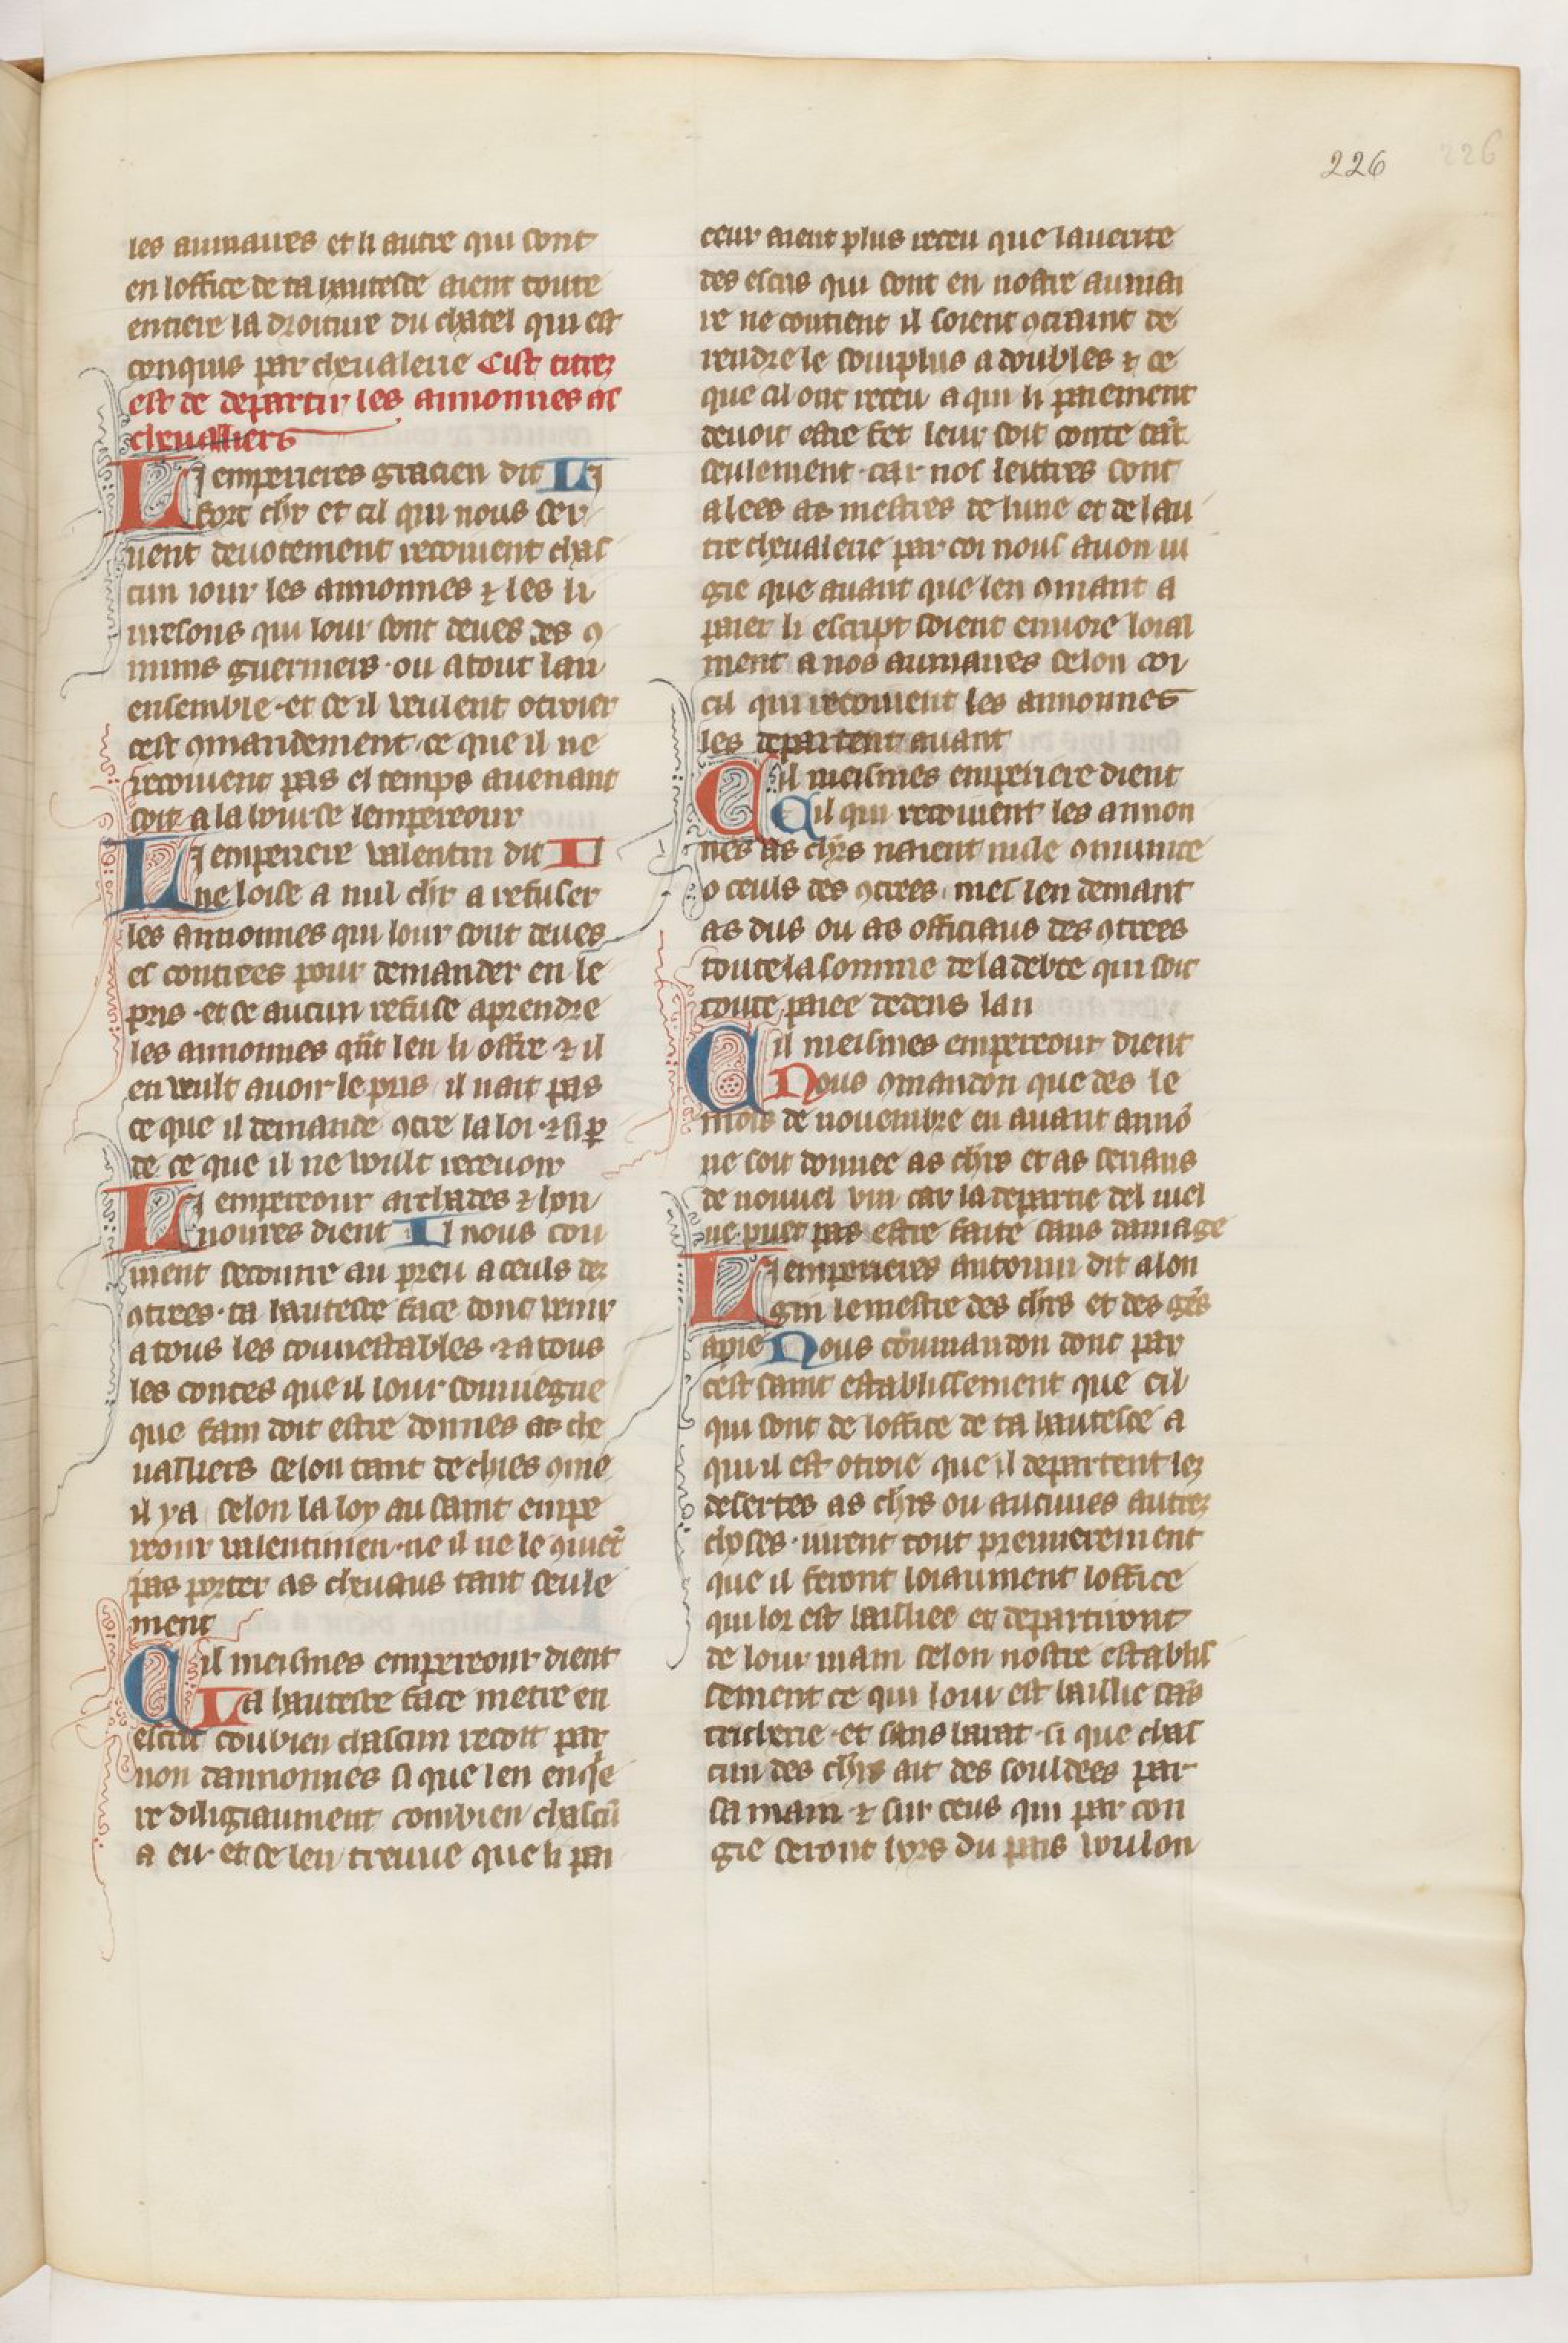 226
226
les aumaires et li autre qui sont
en loffice de ta hautesce aient toute
entiere la droiture du chatel qui est
conquis par cheualerie Cist titrez
est de departir les annonnes as
cheualliers
Li emperieres gracien dit Li
fort chr et cil qui nous ser
uent deuotement recoiuent chas
cun iour les annonnes ⁊ les li
uresons qui lour sont deues des ꝯ
muns guerniers · ou a tout lan
ensemble · et se il veulent otroier
cest ꝯmandement · ce que il ne
recoiuent pas el temps auenant
soit a la bourse lempereour
Li emperiere valentin dit Il
ne loise a nul chr a refuser
les annonnes qui lour sont deues
es contrees pour demander en le
pris · et se aucun refuse aprendre
les annonnes q̃nt len li offre ⁊ il
en veult auoir le pris il nait pas
ce que il demande ꝯtre la loi · ⁊ si ꝑ
de ce que il ne voult receuoir
Li empereour archades ⁊ hon
noures dient Il nous con
uient secourre au preu a ceuls dez
ꝯtrees · ta hautesce face donc venir
a tous les connestables · ⁊ a tous
les contes que il lour conuiegne
que fain doit estre donnes as che
ualliers selon tant de chies ꝯme
il ya selon la loy au saint empe
reour valentinien · ne il ne le ꝯuiet
pas porter as cheuaus tant seule
ment
Cil meismes empereour dient
Ta hautesce face metre en
escrit conbien chascun recoit par
non dannonnes si que len enq̃e
re diligiaument combien chascũ
a eu · et se len treuue que li pai
eeur aient plus receu que la uerite
des escris qui sont en nostre aumai
re ne contient il soient ꝯtraint de
rendre le sourplus a doubles ⁊ ce
que cil ont receu a qui li paiement
deuoit estre fet leur soit conte tãt
seulement · car nos lettres sont
alees as mestres de lune et de lau
tre cheualerie par coi nous auon iu
gie que auant que len ꝯmant a
paier li escript soient enuoie loial
ment a nos aumaires selon coi
cil qui recoiuent les annonnes
les departent auant
Cil meismes emperiere dient
Cil qui recoiuent les annon
nes as chrs naient nule ꝯmunite
o ceuls des ꝯtrees mes len demant
as dus ou as officiaus des ꝯtrees
toute la somme de la debte qui soit
toute paiee dedens lan
Cil meismes empereour dient
Nous ꝯmandon que des le
mois de nouembre en auant annõ
ne soit donnee as chrs et as serians
de nouuel vin car la departie del uiel
ne puet pas estre faite sans damage
Li emperieres antonin dit a lon
gin le mestre des chrs et des gẽs
a pie Nous cõmandon donc par
cest saint establissement que cil
qui sont de loffice de ta hautesce a
qui il est otroie que il departent lez
desertes as chrs ou aucunes autrez
choses · iurent tout premierement
que il feront loiaument loffice
qui lor est baillice et departiront
de lour main selon nostre establis
sement ce qui lour est baillie sãs
tricherie · et sans barat · si que chas
cun des chrs ait des souldees par
sa main ⁊ sur ceus qui par con
gie seront hors du pais voulon